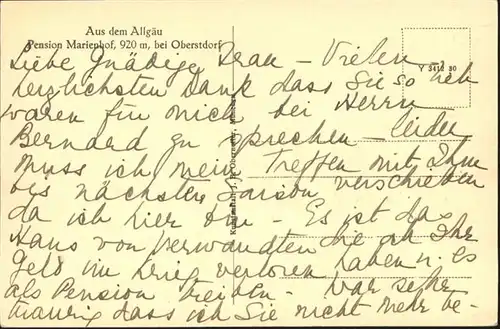 Aus dem Allgäu
Pension Marienhof, 920 m, bei Oberstdorf
Y 3414 30
Liebe Gnädige Frau – Vielen
herzlichsten Dank dass Sie so lieb
waren für mich bei Herrn
Bernard zu sprechen – leider
muss ich mein Treffen mit Ihm
bis nächste Saison verschieben
da ich hier bin – Es ist das
Haus von Verwandten die all Ihr
Geld im Krieg verloren haben u. es
als Pension treiben – War sehr
traurig dass ich Sie nicht mehr be-